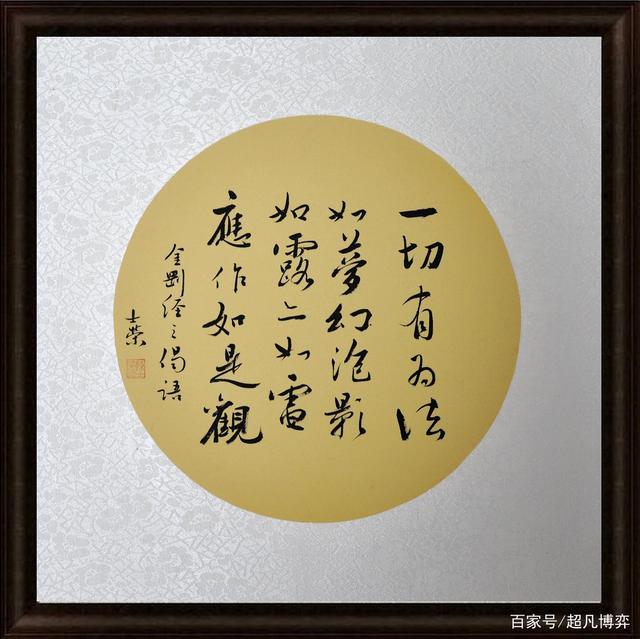 一切有為法
如夢幻泡影
如露亦如電
應作如是觀
金剛經之偈語
士榮
百家号/超凡博弈